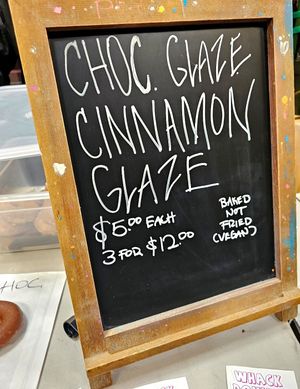 CHOC. GLAZE
CINNAMON
GLAZE
$5.00 EACH
3 FOR $12.00
BAKED
NOT
FRIED
(VEGAN)
HOC.
WHACK